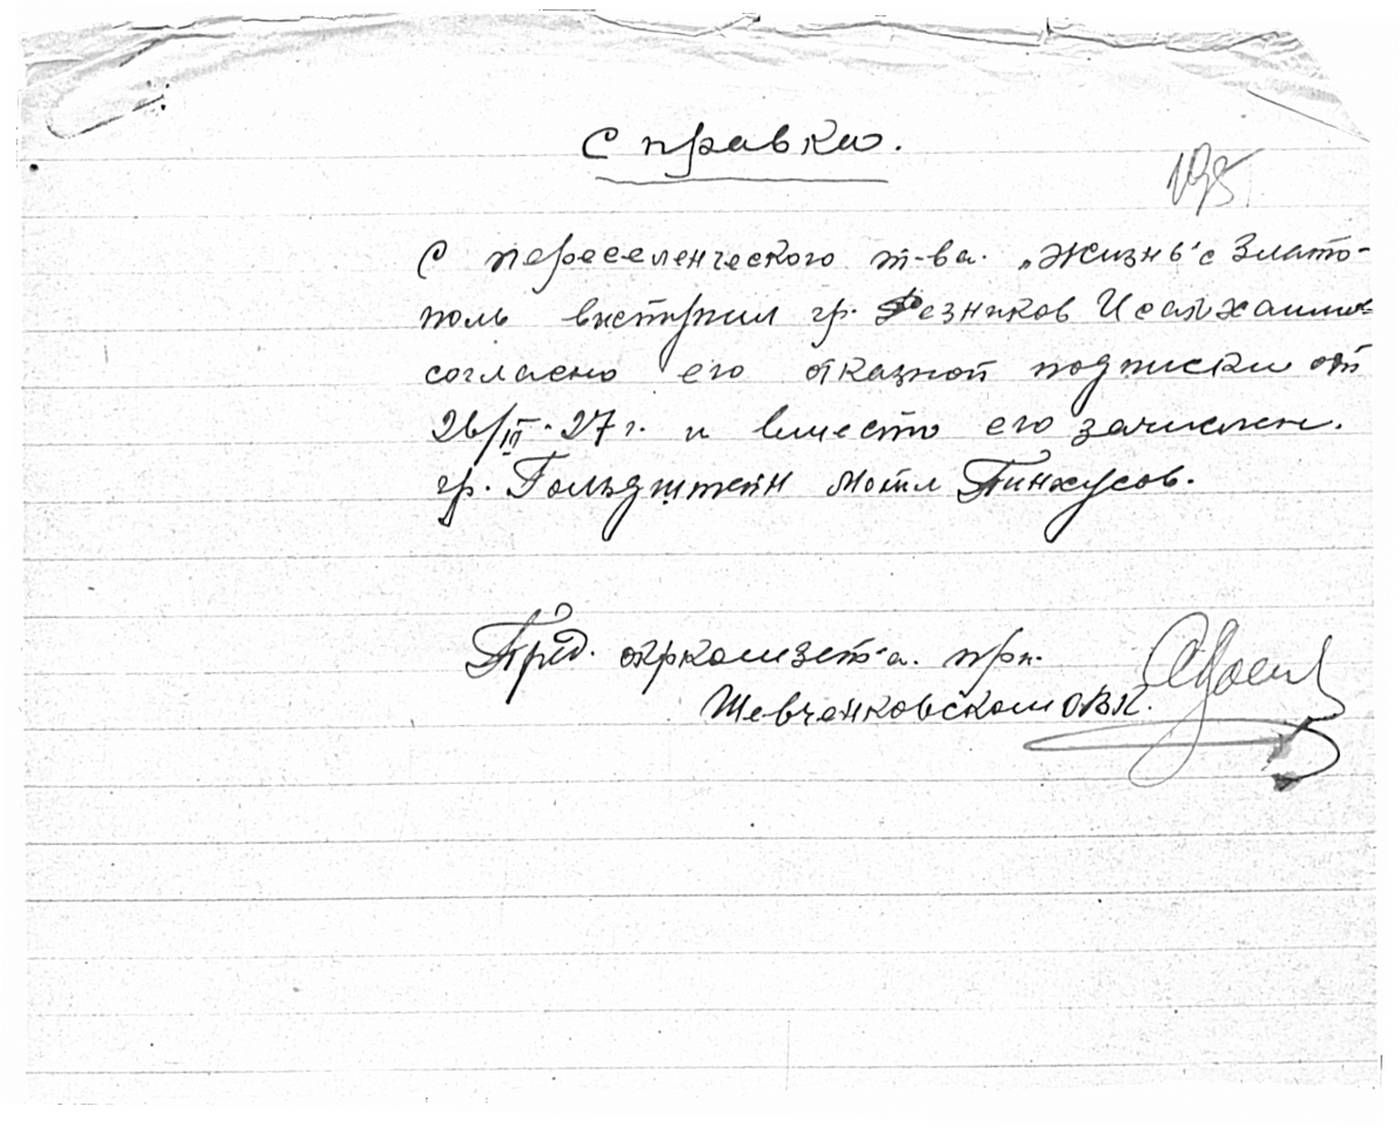 Справка.
195
С переселенческого т-ва. „Жизнь" с Злато-
поль выступил гр. Резников Исай Хаимов
согласно его отказной подписки от
26/III-27 г. и вместо его зачислен.
гр. Гольдштейн Мотл Пинхусов.
Пред. окркомзет-а. при
Шевченковском ОВК.